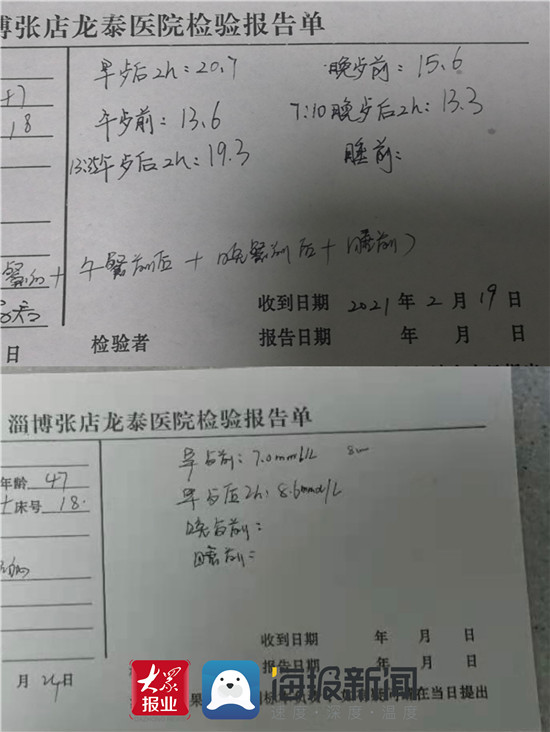 博张店龙泰医院检验报告单
早歺后2h：20.7
晚歺前：15.6
47
18
午歺前：13.6
7:10晚歺后2h：13.3
13:35午歺后2h：19.3
睡前：
餐前+午餐前后+晚餐前后+睡前）
收到日期 2021年2月19日
日
检验者
报告日期 年 月 日
淄博张店龙泰医院检验报告单
年龄 47
床号 18.
早歺前：7.0mmol/L
早歺后2h：8.6mmol/L
晚歺前：
睡前：
收到日期 年 月 日
报告日期 年 月 日
月 24日
大众报业
海报新闻
速度·深度·温度
在当日提出